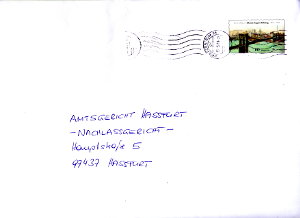 AMTSGERICHT HASSFURT
- NACHLASSGERICHT -
Hauptstraße 5
97437 HASSFURT